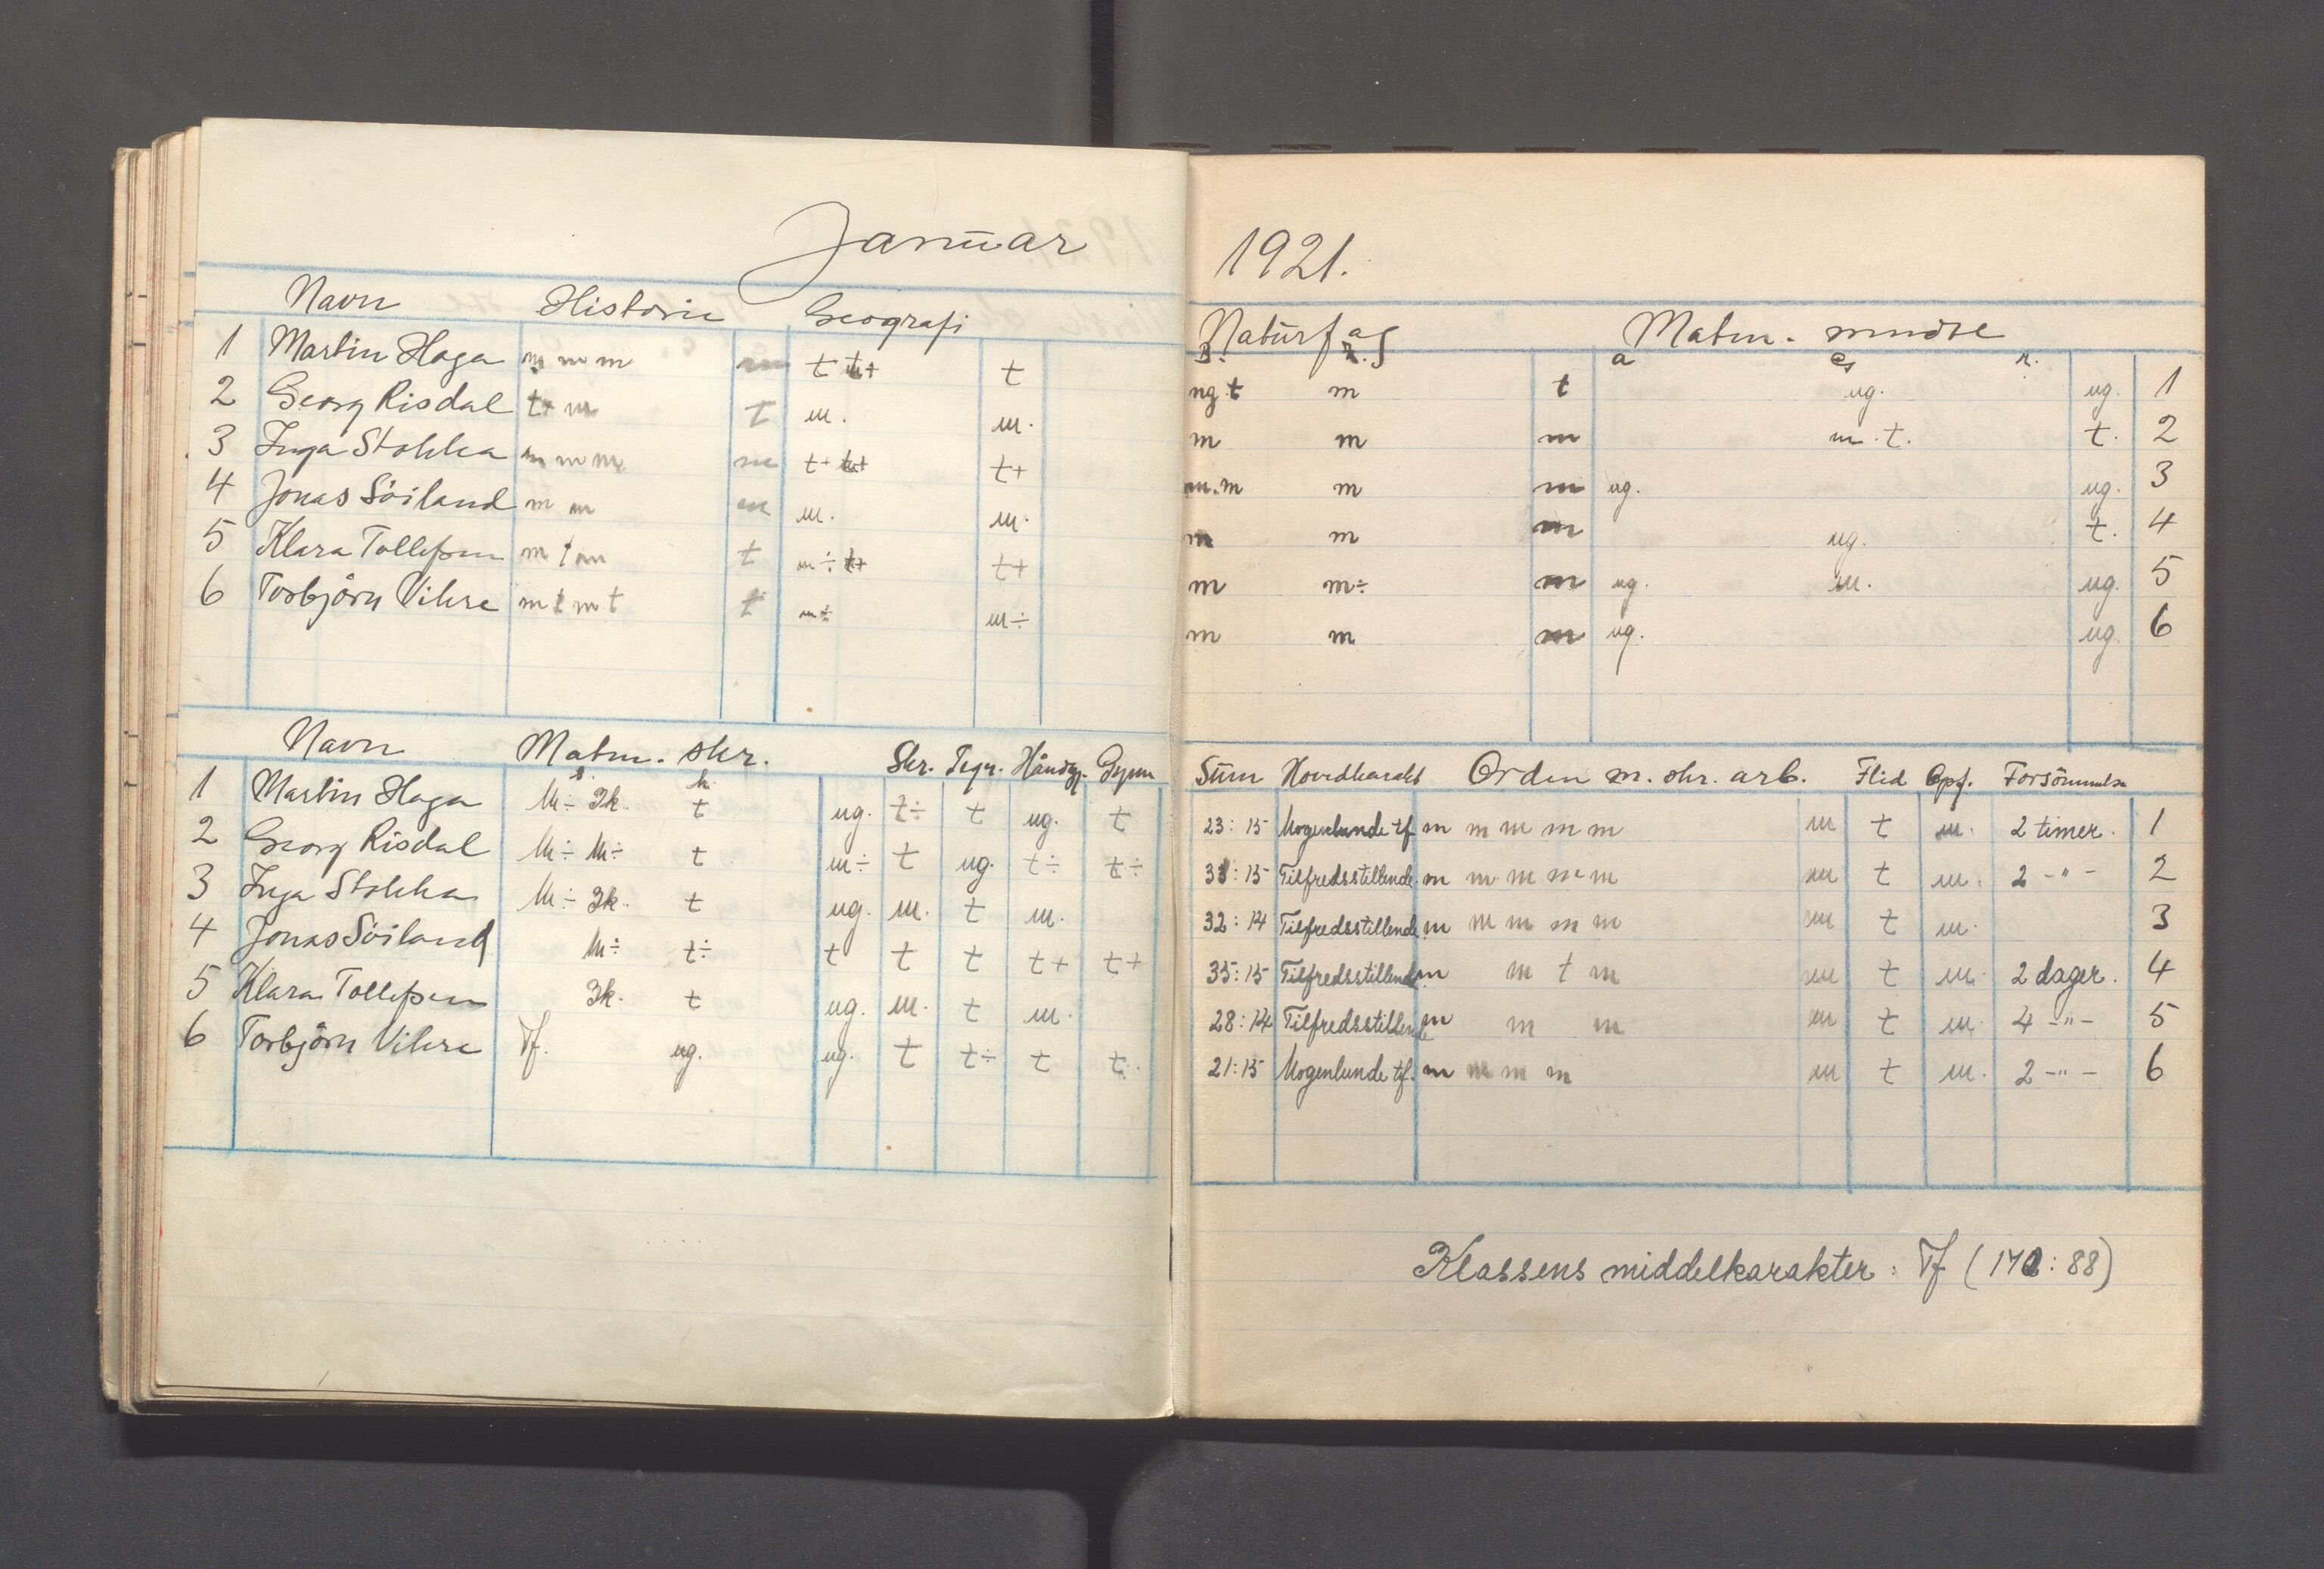 Januar
Navn Historie Geografi
1 Martin Haga m m m m t t+ t
2 Georg Risdal t+ m t m. m.
3 Inga Stokka m m m m t+ t+ t+
4 Jonas Söiland m m m m. m.
5 Klara Tollefsen m t m t m÷ t+ t+
6 Torbjörn Vikse m t m t t m÷ m÷
Navn Matm. skr.
Skr. Tegn. Håndgj. Gymn
s. h
1 Martin Haga M÷ Ik. t ug. t÷ t ug. t
2 Georg Risdal M÷ M÷ t m÷ t ug. t÷ t÷
3 Inga Stokka M÷ Ik. t ug. m. t m.
4 Jonas Söiland M÷ t÷ t t t t+ t+
5 Klara Tollefsen Ik. t ug. m. t m.
6 Torbjörn Vikse Tf. ug. ug. t t÷ t t.
1921.
Naturfag Matm. mundtl
a r.
ug t m t ug. ug. 1
m m m m. t. t. 2
m. m m m ug. ug. 3
m m m ug. t. 4
m m÷ m ug. m. ug. 5
m m m ug. ug. 6
Sum Hovedkarakt Orden m. skr. arb. Flid Opf. Forsömmelse
23:15 Mogenlunde tf. m m m m m m t m. 2 timer. 1
:15 Tilfredsstillende m m m m m m t m. 2 -"- 2
32:14 Tilfredsstillende m m m m m m t m. 3
35:15 Tilfredsstillende m m t m m t m. 2 dager. 4
28:14 Tilfredsstillende m m m m t m. 4 -"- 5
21:15 Mogenlunde tf. m m m m m t m. 2 -"- 6
Klassens middelkarakter: Tf (172:88)